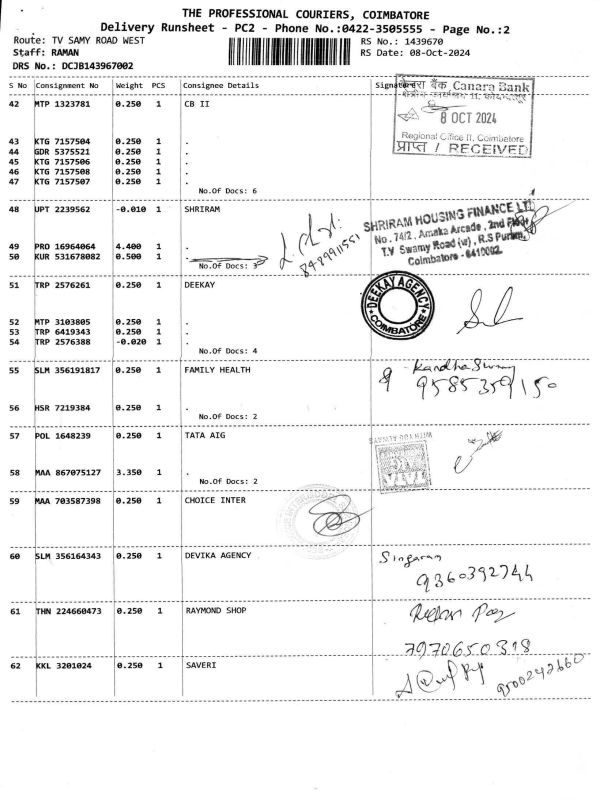 THE PROFESSIONAL COURIERS, COIMBATORE
Delivery Runsheet - PC2 - Phone No.:0422-3505555 - Page No.:2
Route: TV SAMY ROAD WEST
RS No.: 1439670
Staff: RAMAN
RS Date: 08-Oct-2024
DRS No.: DCJB143967002
S No Consignment No Weight PCS Consignee Details Signature
42 MTP 1323781 0.250 1 CB II
केनरा बैंक Canara Bank
8 OCT 2024
Regional Office II, Coimbatore
प्राप्त / RECEIVED
43 KTG 7157504 0.250 1 .
44 GDR 5375521 0.250 1 .
45 KTG 7157506 0.250 1 .
46 KTG 7157508 0.250 1 .
47 KTG 7157507 0.250 1 .
No.Of Docs: 6
48 UPT 2239562 -0.010 1 SHRIRAM
SHRIRAM HOUSING FINANCE LTD
No. 74/2, Amaka Arcade, 2nd Floor
T.V Swamy Road (w), R.S Puram,
Coimbatore - 6410002
8489911551
49 PRO 16964064 4.400 1 .
50 KUR 531678082 0.500 1 .
No.Of Docs: 3
51 TRP 2576261 0.250 1 DEEKAY
DEEKAY AGENCY
COIMBATORE
52 MTP 3103805 0.250 1 .
53 TRP 6419343 0.250 1 .
54 TRP 2576388 -0.020 1 .
No.Of Docs: 4
55 SLM 356191817 0.250 1 FAMILY HEALTH
KandhaSwamy
9585359150
56 HSR 7219384 0.250 1 .
No.Of Docs: 2
57 POL 1648239 0.250 1 TATA AIG
WITH YOU ALWAYS
TATA
AIG
58 MAA 867075127 3.350 1 .
No.Of Docs: 2
59 MAA 703587398 0.250 1 CHOICE INTER
60 SLM 356164343 0.250 1 DEVIKA AGENCY
Singaram
9360392744
61 THN 224660473 0.250 1 RAYMOND SHOP
7970650318
62 KKL 3201024 0.250 1 SAVERI
9500242660